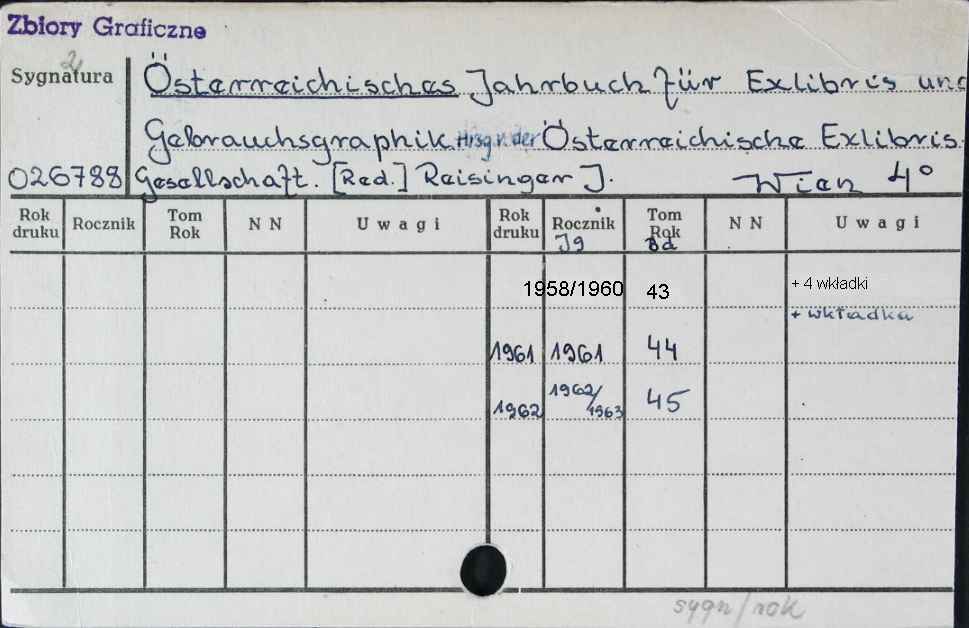 Zbiory Graficzne
Sygnatura
Österreichisches Jahrbuch für Exlibris und
Gebrauchsgraphik. Hrsg. v. der Österreichische Exlibris-
026788 Gesellschaft. [Red.] Reisinger J. Wien 4°
Rok druku Rocznik Tom Rok N N Uwagi Rok druku Rocznik Tom Rok N N Uwagi
Jg Bd
1958/1960 43 + 4 wkładki
+ wkładka
1961 1961 44
1962 1962/1963 45
sygn/rok